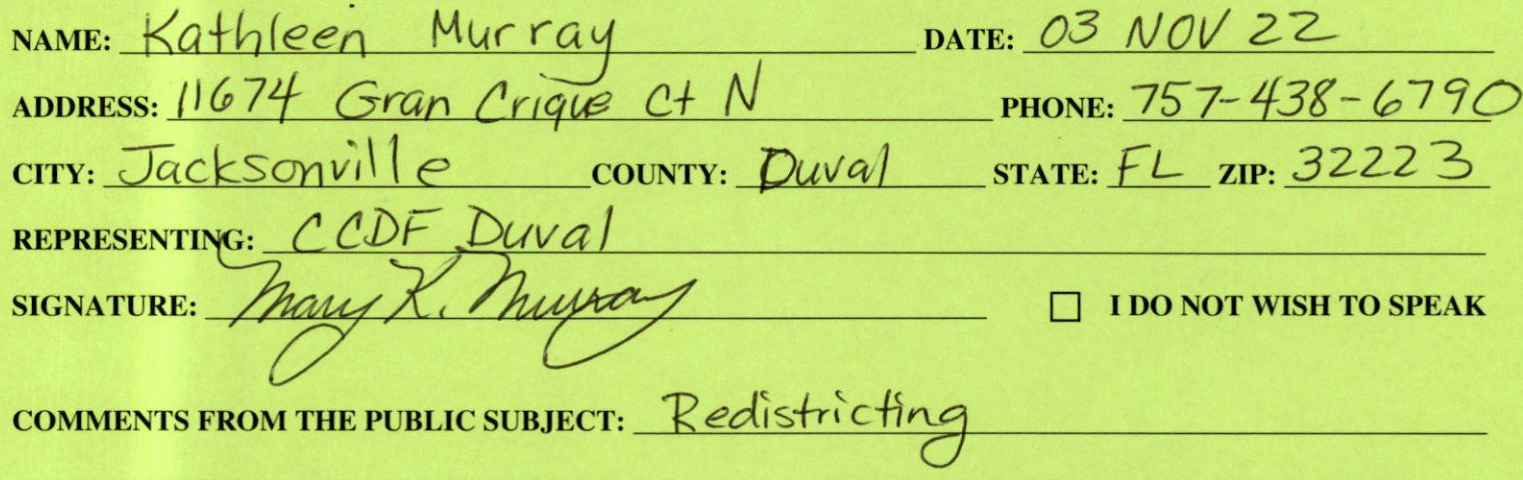 NAME: Kathleen Murray DATE: 03 NOV 22
ADDRESS: 11674 Gran Crique Ct N PHONE: 757-438-6790
CITY: Jacksonville COUNTY: Duval STATE: FL ZIP: 32223
REPRESENTING: CCDF Duval
SIGNATURE: Mary K. Murray I DO NOT WISH TO SPEAK
COMMENTS FROM THE PUBLIC SUBJECT: Redistricting